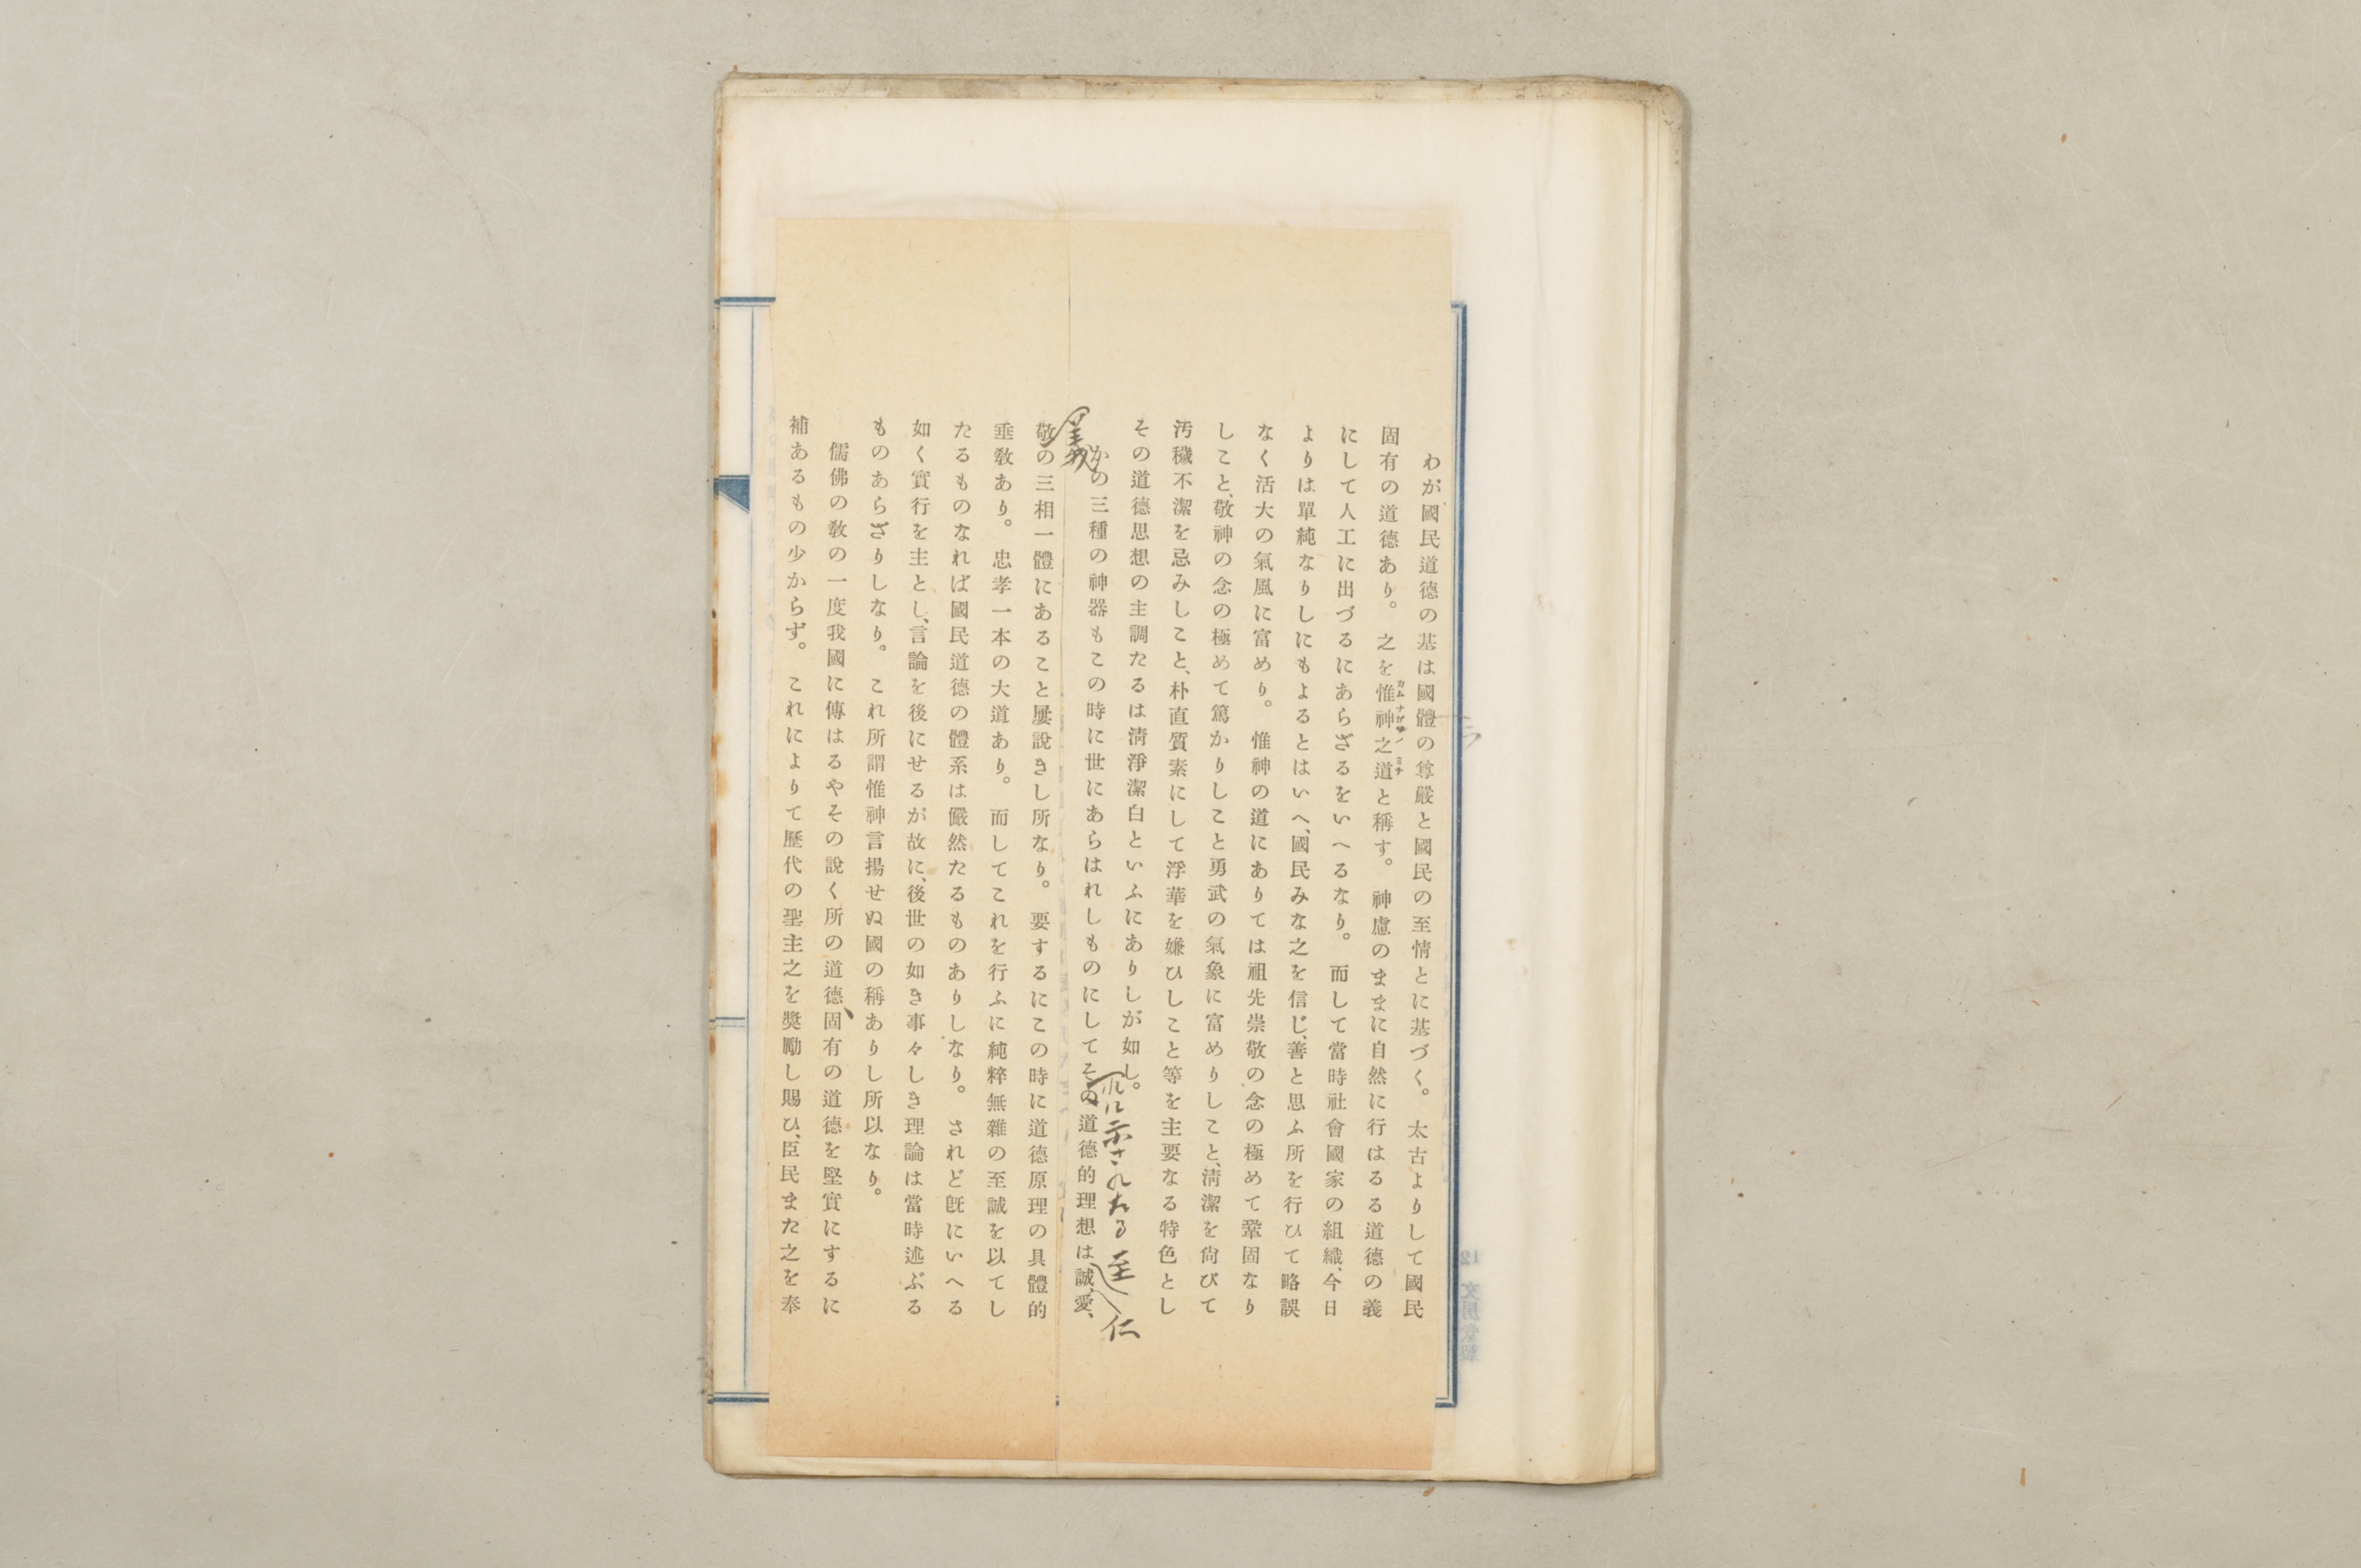 わが國民道德の基は國體の尊嚴と國民の至情とに基づく。太古よりして國民
固有の道德あり。之を惟神之道と稱す。神慮のままに自然に行はるる道德の義
カムナガラノミチ
にして人工に出づるにあらざるをいへるなり。而して當時社會國家の組織、今日
よりは單純なりしにもよるとはいへ、國民みな之を信じ、善と思ふ所を行ひて略誤
なく活大の氣風に富めり。惟神の道にありては祖先崇敬の念の極めて鞏固なり
しこと、敬神の念の極めて篤かりしこと勇武の氣象に富めりしこと、淸潔を尙びて
汚穢不潔を忌みしこと、朴直質素にして浮華を嫌ひしこと等を主要なる特色とし
その道德思想の主調たるは淸淨潔白といふにありしが如し。
かの三種の神器もこの時に世にあらはれしものにしてその道德的理想は誠、愛、
れに示されたる
至
仁
義
敬の三相一體にあること屢說きし所なり。要するにこの時に道德原理の具體的
垂敎あり。忠孝一本の大道あり。而してこれを行ふに純粹無雜の至誠を以てし
たるものなれば國民道德の體系は儼然たるものありしなり。されど旣にいへる
如く實行を主とし、言論を後にせるが故に、後世の如き事々しき理論は當時述ぶる
ものあらざりしなり。これ所謂惟神言揚せぬ國の稱ありし所以なり。
儒佛の敎の一度我國に傳はるやその說く所の道德、固有の道德を堅實にするに
補あるもの少からず。これによりて歷代の聖主之を奬勵し賜ひ、臣民また之を奉
12 文房堂製